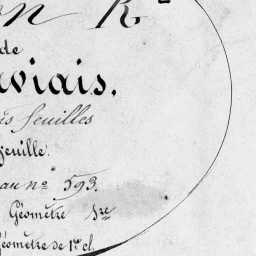 on R
de
aviais.
is feuilles
feuille.
au n° 593.
Géomètre
Géomètre de 1re cl